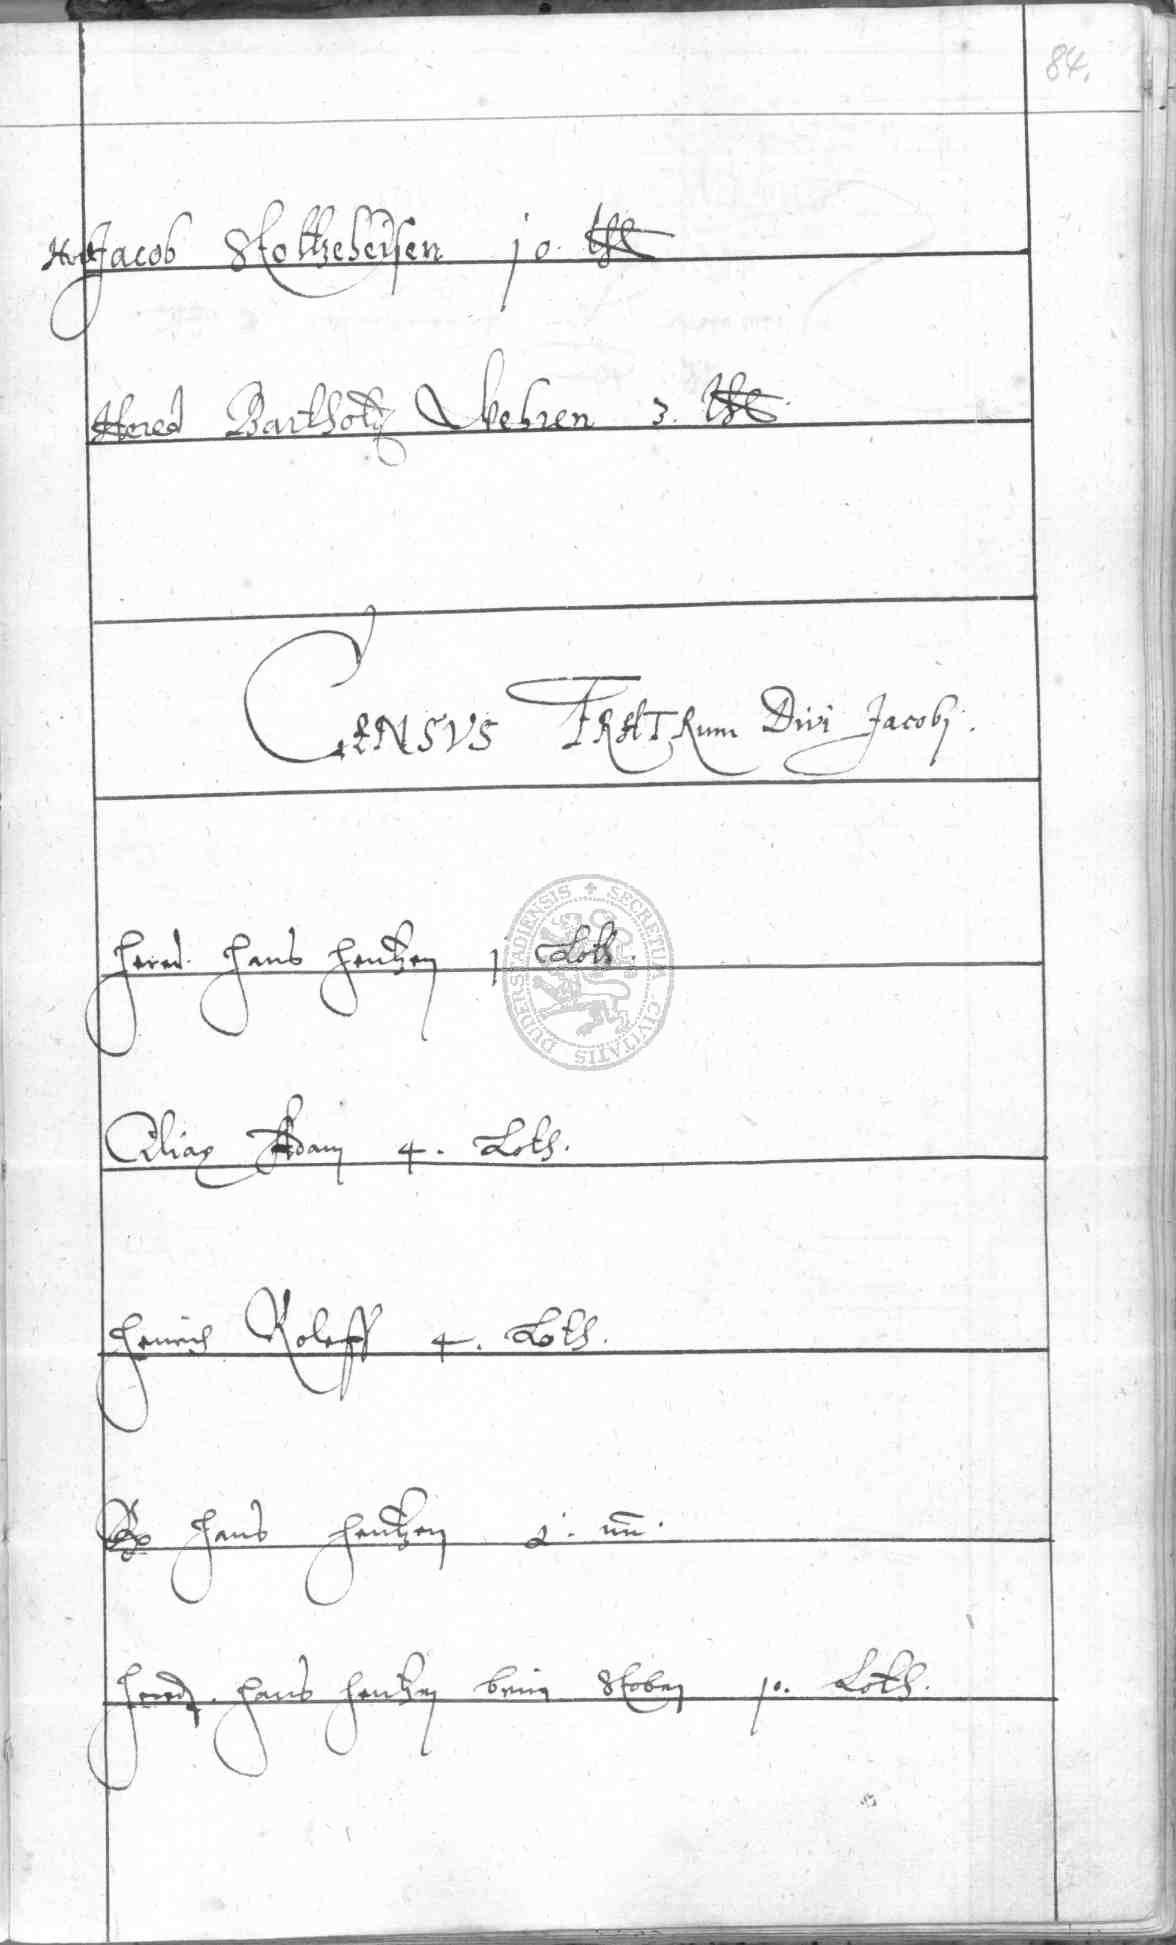 84.
Hered Jacob Stoltzeheisen 10. ℔
Hered Bartholt Wehren 3. ℔
CENSVS FRATRum Divi Jacobj.
Hered. Hans Hentzen 1 Loth.
Adam 4. Loth.
Henrich Roleff 4. Loth.
Hans Hentzen
Hered. Hans Hentzen beim Stoben 10. Loth.
SECRETUM CIVITATIS DUDERSTADIENSIS